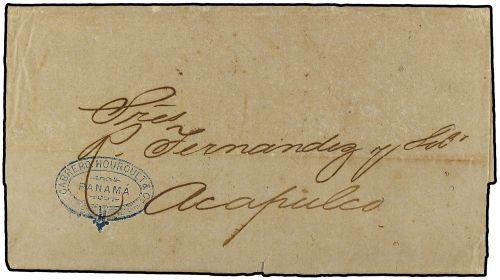 Sres
P. Fernández y Sobº
Acapulco
CABRERO HOURQUET & Cº
PANAMÁ